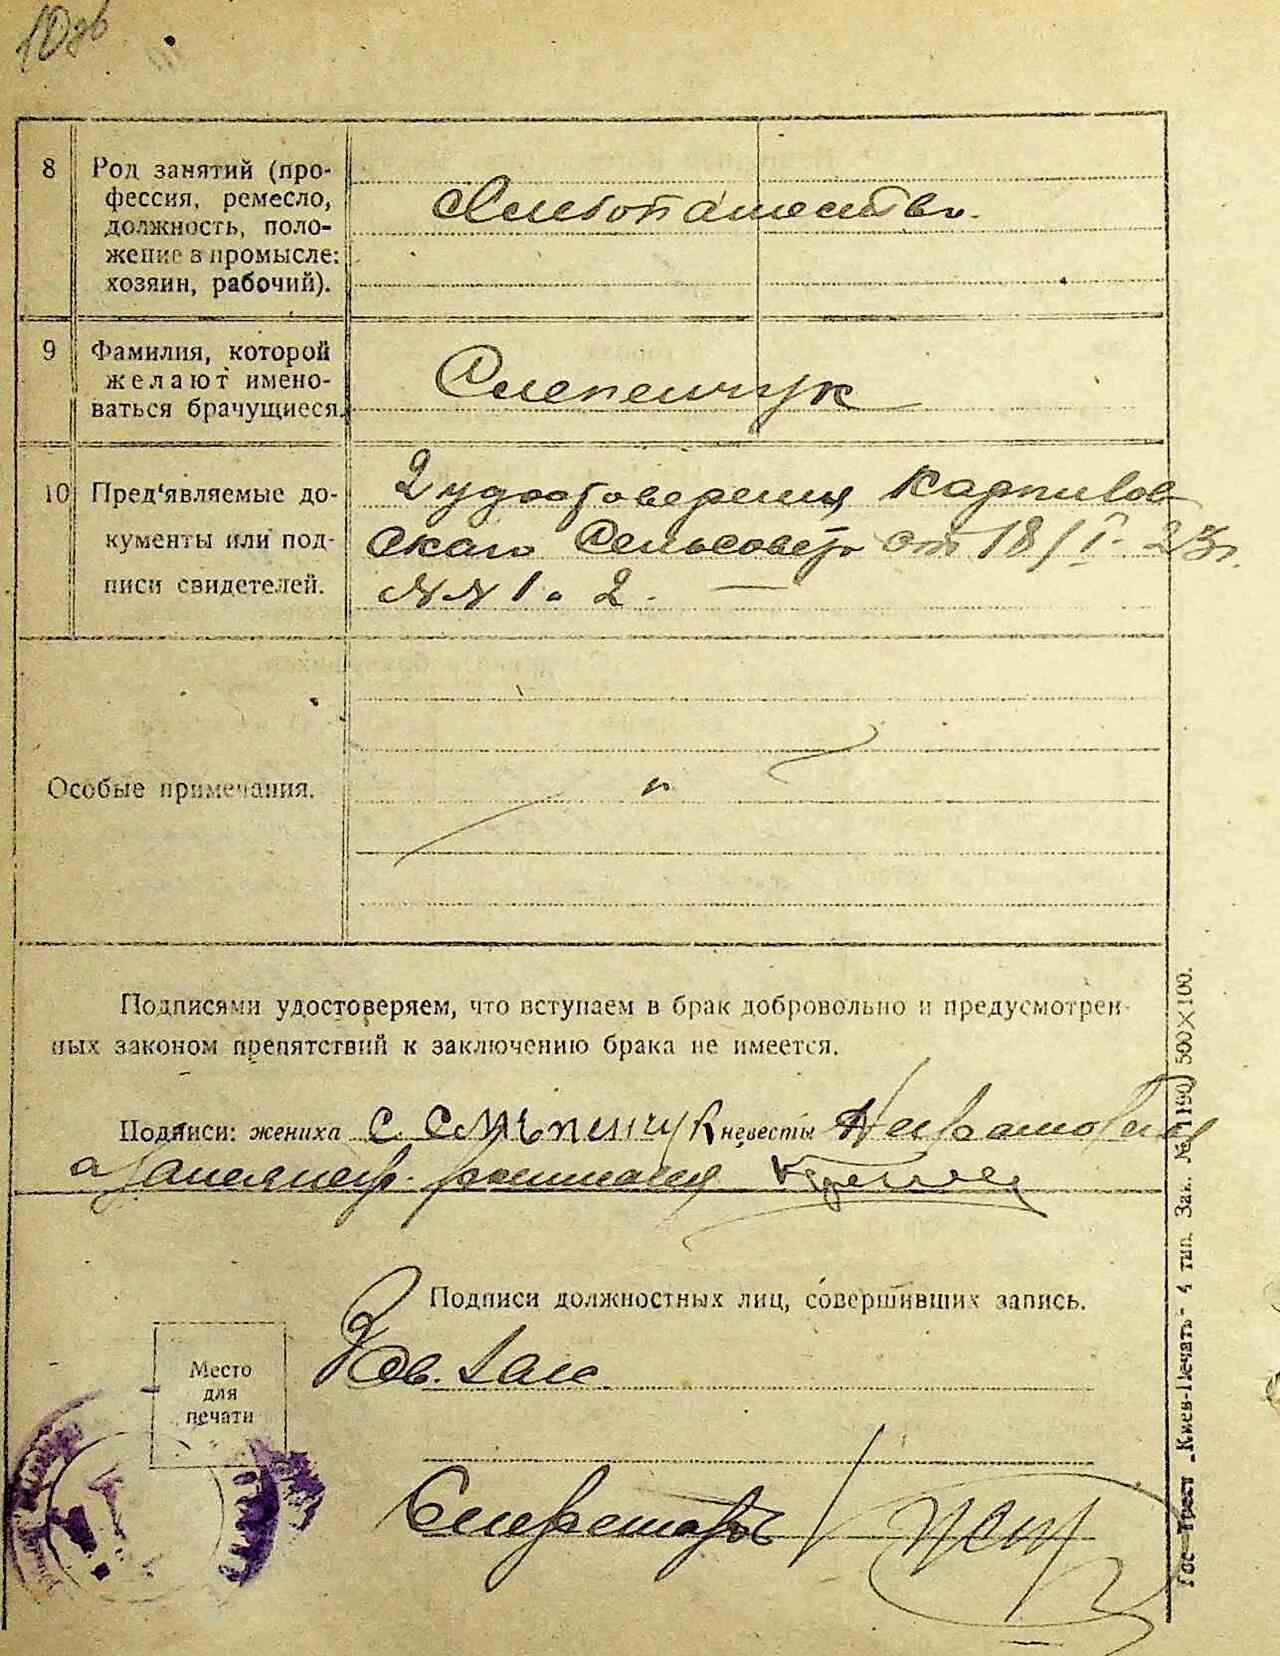 10об
8 Род занятий (про-
фессия, ремесло,
должность, поло-
жение в промысле:
хозяин, рабочий).
Хлебопашество.
9 Фамилия, которой
желают имено-
ваться брачущиеся.
Слепенчук
10 Пред'являемые до-
кументы или под-
писи свидетелей.
2 удостоверения Карпилов
ского Сельсовета от 18/I - 23г.
№№ 1 и 2. —
Особые примечания.
Подписями удостоверяем, что вступаем в брак добровольно и предусмотрен-
ных законом препятствий к заключению брака не имеется.
Подписи: жениха С. Слепенчук невесты Неграмотная
а за нея
Подписи должностных лиц, совершивших запись.
Зав. Загс
Место
для
печати
Секретарь
Гос-Трест „Киев-Печать" 4 тип. Зак. № 1190/500X100.